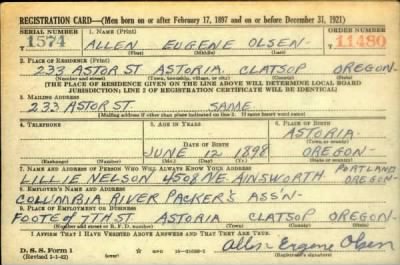 REGISTRATION CARD—(Men born on or after February 17, 1897 and on or before December 31, 1921)
SERIAL NUMBER 1. NAME (Print) ORDER NUMBER
1574 ALLEN EUGENE OLSEN 11480
(First) (Middle) (Last)
2. PLACE OF RESIDENCE (Print)
233 ASTOR ST ASTORIA CLATSOP OREGON
(Number and street) (Town, township, village, or city) (County) (State)
[THE PLACE OF RESIDENCE GIVEN ON THE LINE ABOVE WILL DETERMINE LOCAL BOARD
JURISDICTION; LINE 2 OF REGISTRATION CERTIFICATE WILL BE IDENTICAL]
3. MAILING ADDRESS
233 ASTOR ST. SAME
[Mailing address if other than place indicated on line 2. If same insert word same]
4. TELEPHONE 5. AGE IN YEARS 6. PLACE OF BIRTH
ASTORIA
DATE OF BIRTH (Town or county)
JUNE 12 1898 OREGON
(Exchange) (Number) (Mo.) (Day) (Yr.) (State or country)
7. NAME AND ADDRESS OF PERSON WHO WILL ALWAYS KNOW YOUR ADDRESS PORTLAND
LILLIE NELSON 4508 N.E. AINSWORTH OREGON
8. EMPLOYER'S NAME AND ADDRESS
COLUMBIA RIVER PACKER'S ASS'N
9. PLACE OF EMPLOYMENT OR BUSINESS
FOOT OF 7TH ST ASTORIA CLATSOP OREGON
(Number and street or R. F. D. number) (Town) (County) (State)
I AFFIRM THAT I HAVE VERIFIED ABOVE ANSWERS AND THAT THEY ARE TRUE.
D. S. S. Form 1 Allen Eugene Olsen
(Revised 4-1-42) (Registrant's signature)